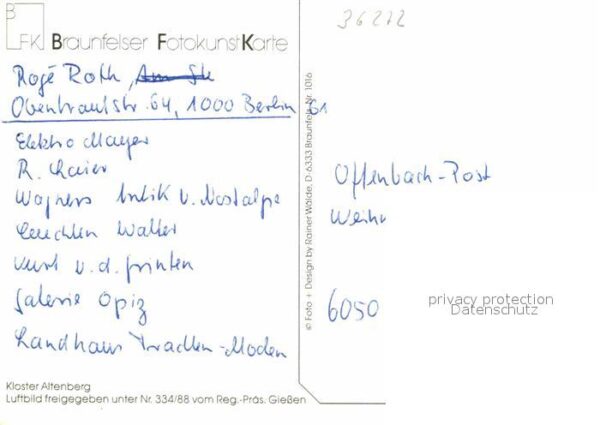 36272
B
FK Braunfelser FotokunstKarte
Rogé Roth,
Obentrautstr. 64, 1000 Berlin 61
Elektro Mayer
R.
Wagners Antik u. Nostalgie
Leuchten Walter
u. d.
Galerie Opiz
Landhaus Trachten-Moden
Kloster Altenberg
Luftbild freigegeben unter Nr. 334/88 vom Reg.-Präs. Gießen
© Foto + Design by Rainer Waide, D-6333 Braunfels Nr. 1016
Offenbach-Post
6050
privacy protection
Datenschutz